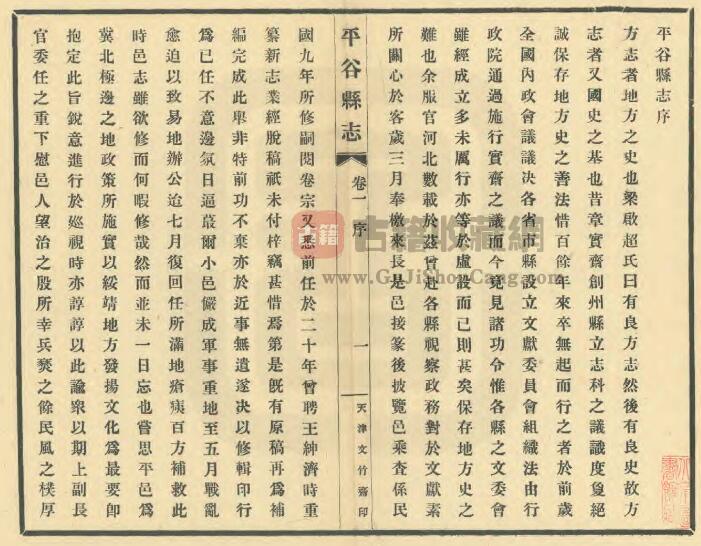 平谷縣志序
方志者地方之史也梁啟超氏曰有良方志然後有良史故方
志者又國史之基也昔章實齋創州縣立志科之議議度敻絕
誠保存地方史之善法惜百餘年來卒無起而行之者於前歲
全國內政會議議決各省市縣設立文獻委員會組織法由行
政院通過施行實齋之議而今竟見諸功令惟各縣之文委會
雖經成立多未厲行亦等於虛設而已則甚矣保存地方史之
難也余服官河北數載於茲曾赴各縣視察政務對於文獻素
所關心於客歲三月奉檄來長是邑接篆後披覽邑乘查係民
平谷縣志
卷一 序
一
天津文竹齋印
國九年所修嗣閱卷宗又悉前任於二十年曾聘王紳濟時重
纂新志業經脫稿祇未付梓竊甚惜焉第是既有原稿再為補
編完成此舉非特前功不棄亦於近事無遺遂決以修輯印行
為已任不意邊氛日逼蕞爾小邑儼成軍事重地至五月戰亂
愈迫以致易地辦公迨七月復回任所滿地瘡痍百方補救此
時邑志雖欲修而何暇修哉然而並未一日忘也嘗思平邑為
冀北極邊之地政策所施實以綏靖地方發揚文化為最要卽
抱定此旨銳意進行於巡視時亦諄諄以此諭衆以期上副長
官委任之重下慰邑人望治之殷所幸兵燹之餘民風之樸厚
古籍 古籍收藏網
www.GuJiShouCang.com